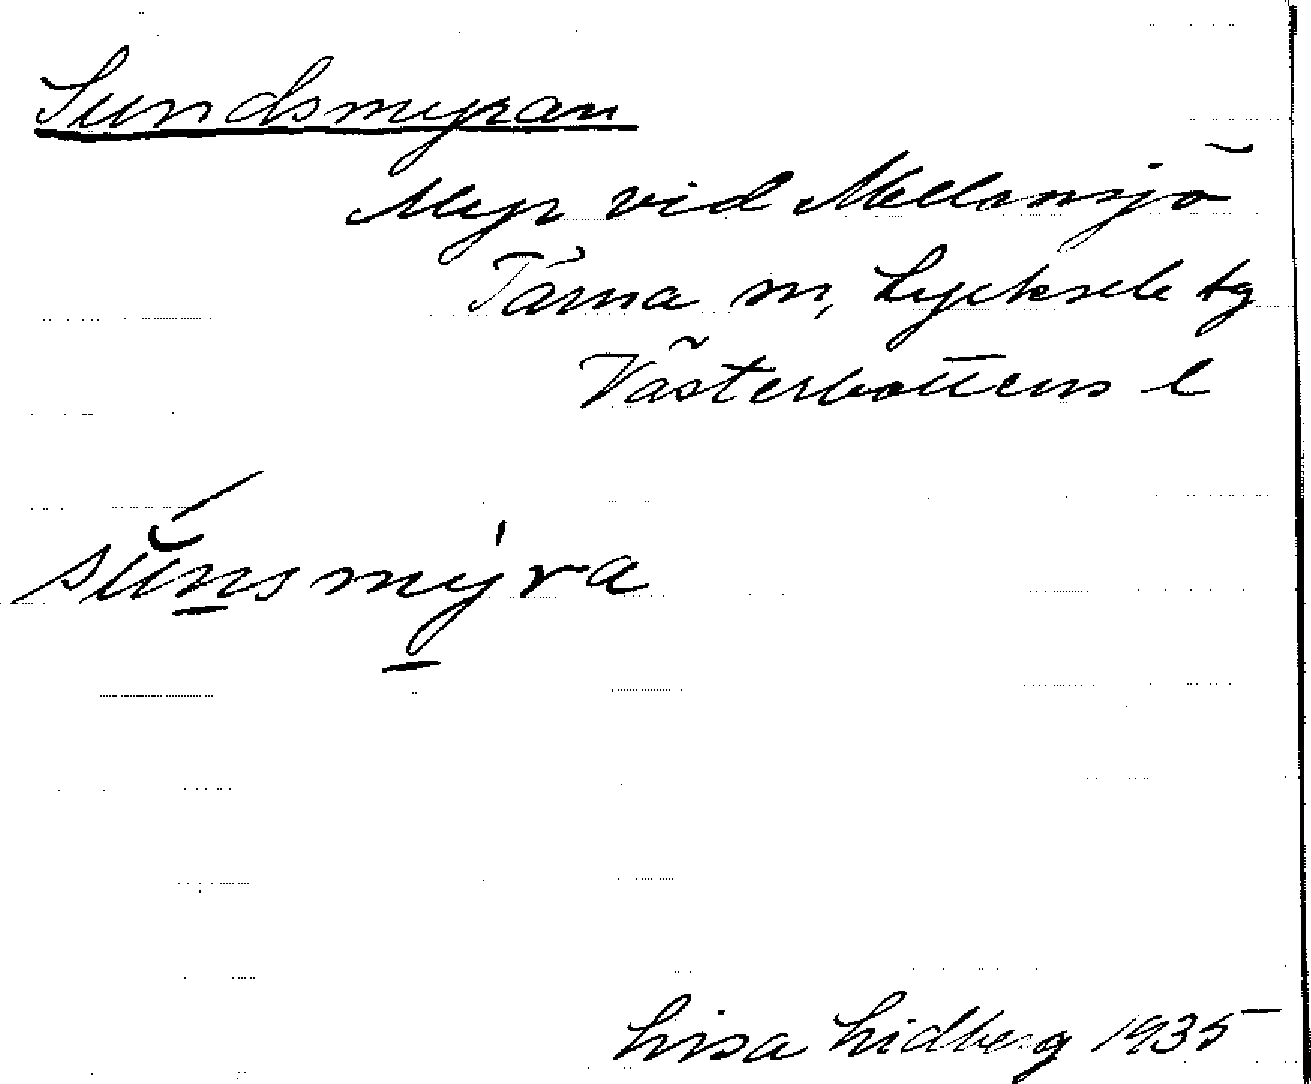 Sundsmyran
Myr vid Mellansjö
Tärna sn, Lycksele tg
Västerbottens l
sŭ́n̲smy̲̍ra
Lisa Lidberg 1935